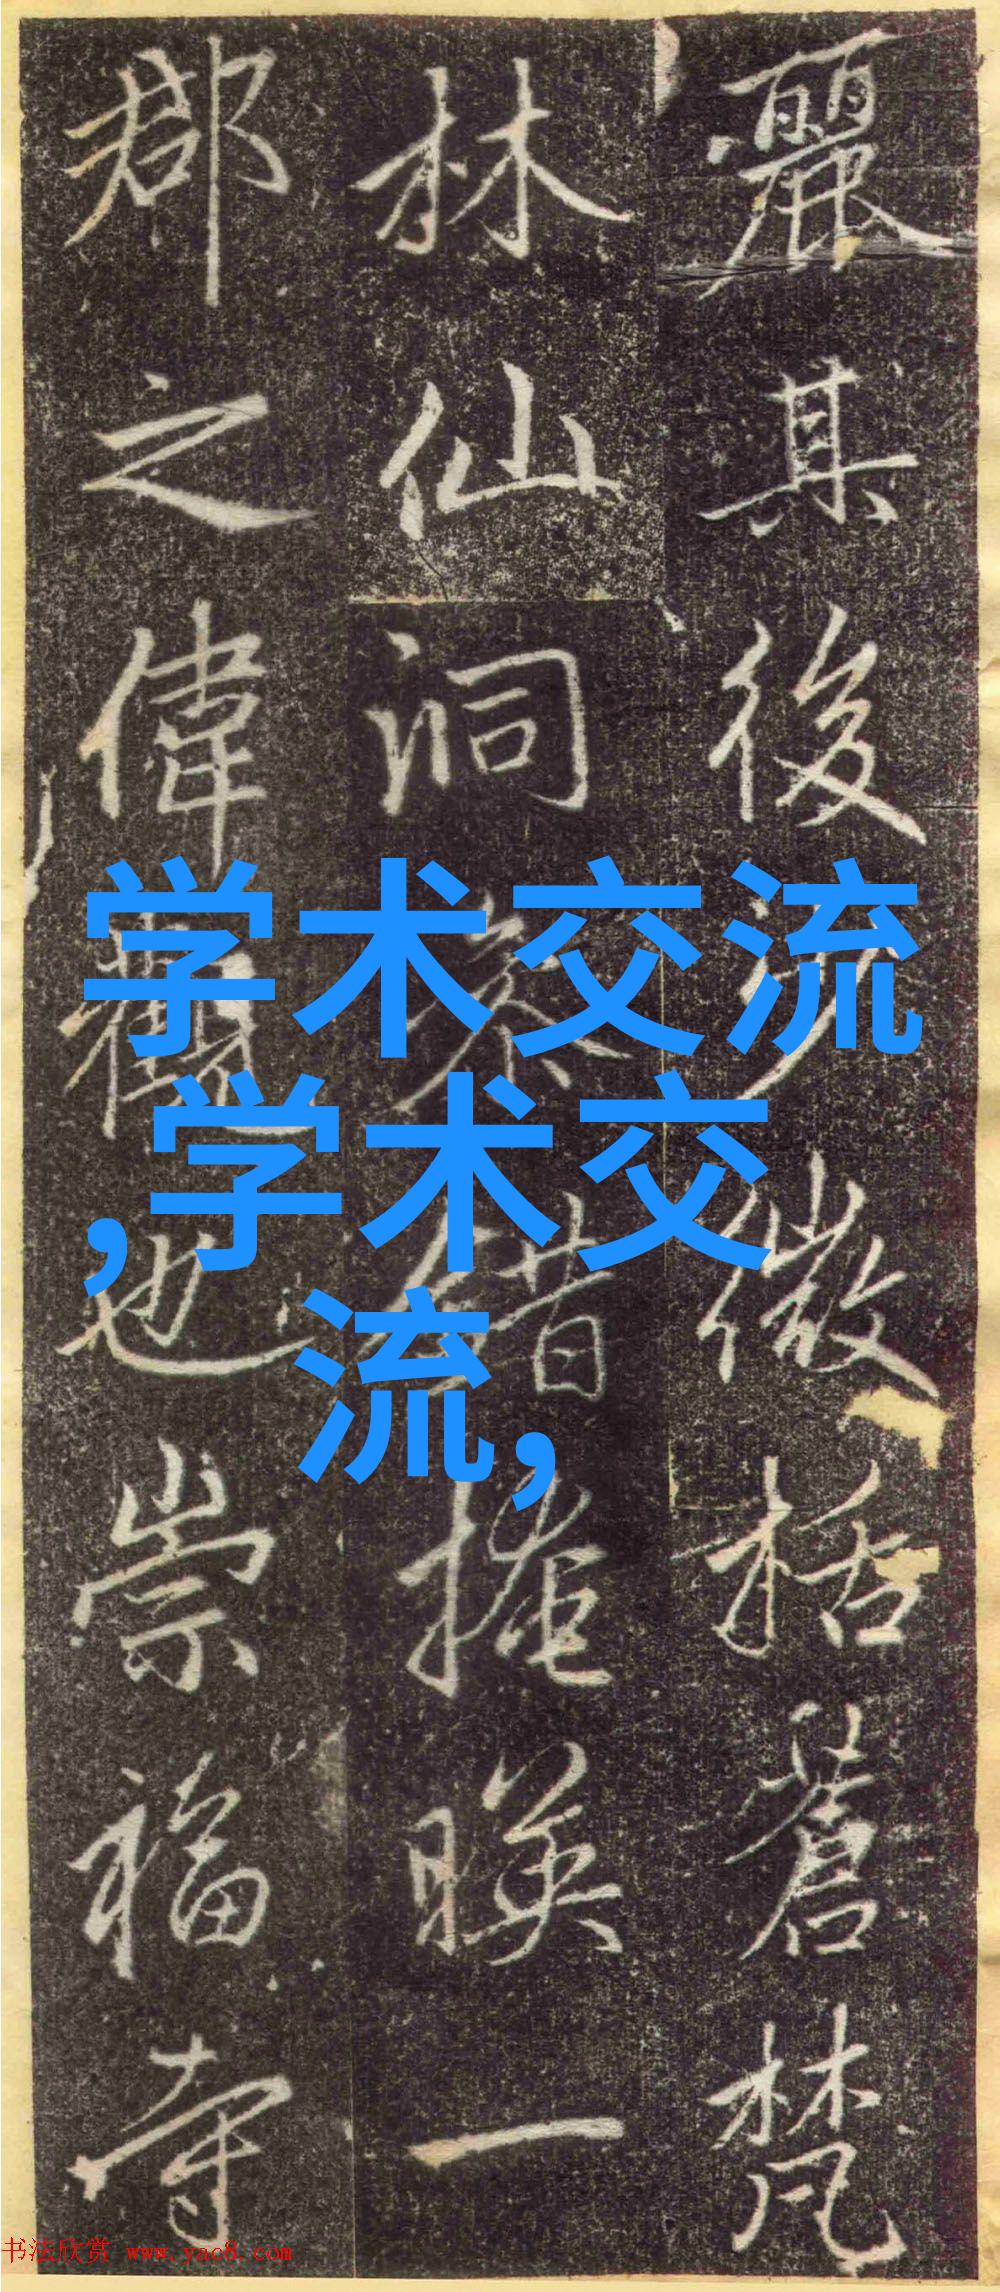 麗其後少微括蒼梵
林仙洞參錯掩暎一
郡之偉觀也崇福寺
学术交流
,学术交
流,
书法欣赏 www.yac8.com